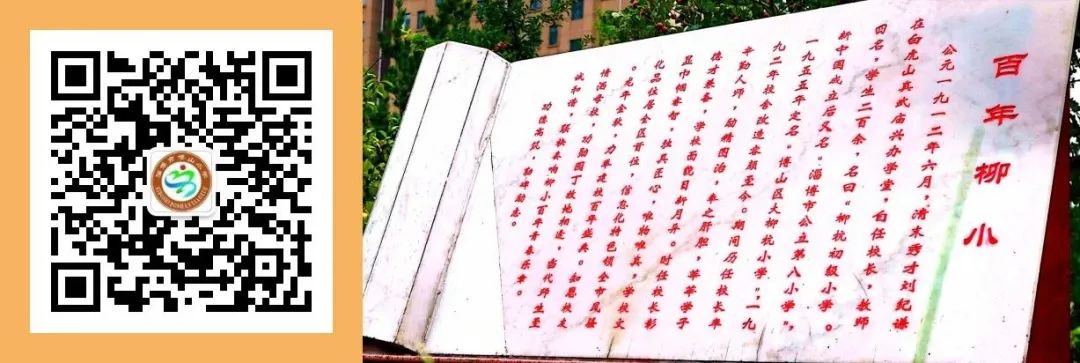 百年柳小
公元一九一二年六月，清末秀才刘纪谦
在白虎山真武庙兴办学堂，自任校长，教师
四名，学生二百余，名曰“柳杭初级小学。
新中国成立后又名“淄博市公立第八小学”，
一九五五年定名“博山区大柳杭小学”，一九
九二年校舍改造容颜至今。期间历任校长率
辛勤人师，励精图治，奉之肝胆，莘莘学子
德才兼备，学校面貌日新月异。时任校长彰
显巾帼睿智，独具匠心，唯物唯真，学校文
化品位居全区首位，信息化特色领全市风骚
。龙年金秋，力举建校百年盛典。知恩校友
情洒母校，功勋园丁故地相逢，当代师生至
诚和谐，联袂奏响柳小百年青春乐章。
功德高筑，勒碑励志。